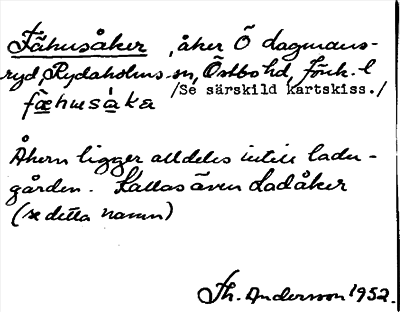 Fähusåker, åker Ö dagmans-
ryd, Rydaholms sn, Östbo hd, Jönk. l
/Se särskild kartskiss./
fæhusåka
Åkern ligger alldeles intill ladu-
gården. Kallas även Ladåker
(se detta namn)
Th. Andersson 1952.